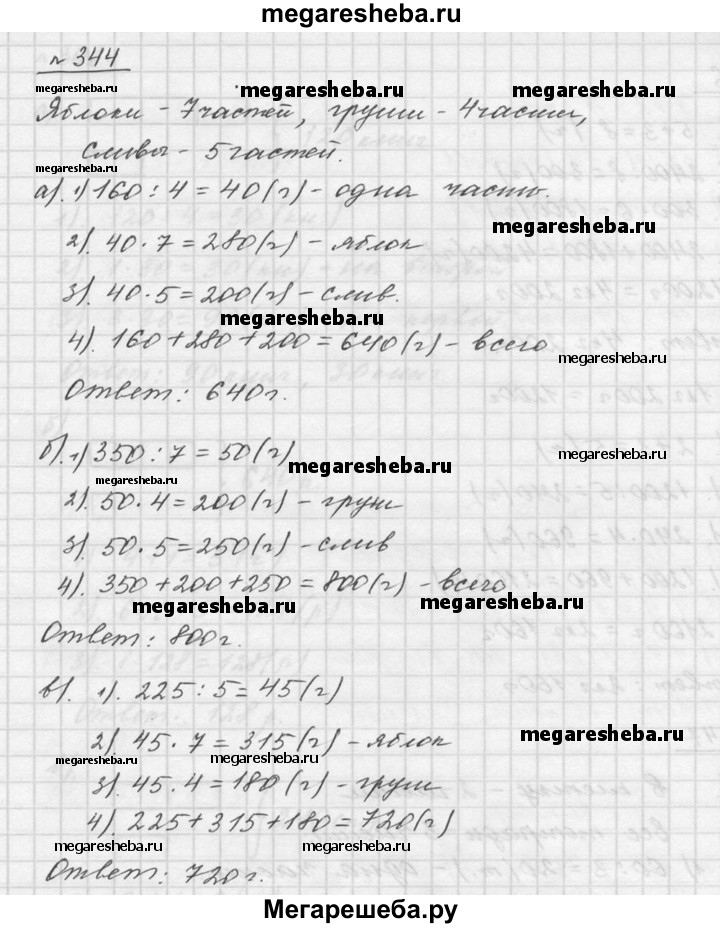 megaresheba.ru
№ 344
megaresheba.ru
megaresheba.ru megaresheba.ru
Яблоки - 7 частей, груши - 4 части,
сливы - 5 частей.
megaresheba.ru
а). 1) 160 : 4 = 40 (г) - одна часть.
megaresheba.ru
2). 40 · 7 = 280 (г) - яблок
3). 40 · 5 = 200 (г) - слив.
megaresheba.ru
4). 160 + 280 + 200 = 640 (г) - всего
megaresheba.ru
Ответ: 640 г.
б). 1) 350 : 7 = 50 (г)
megaresheba.ru megaresheba.ru
megaresheba.ru
2). 50 · 4 = 200 (г) - груш
3). 50 · 5 = 250 (г) - слив
4). 350 + 200 + 250 = 800 (г) - всего
megaresheba.ru megaresheba.ru
Ответ: 800 г.
в). 1). 225 : 5 = 45 (г)
megaresheba.ru
2). 45 · 7 = 315 (г) - яблок
megaresheba.ru megaresheba.ru
3). 45 · 4 = 180 (г) - груш
4). 225 + 315 + 180 = 720 (г)
megaresheba.ru megaresheba.ru megaresheba.ru
Ответ: 720 г.
Мегарешеба.ру